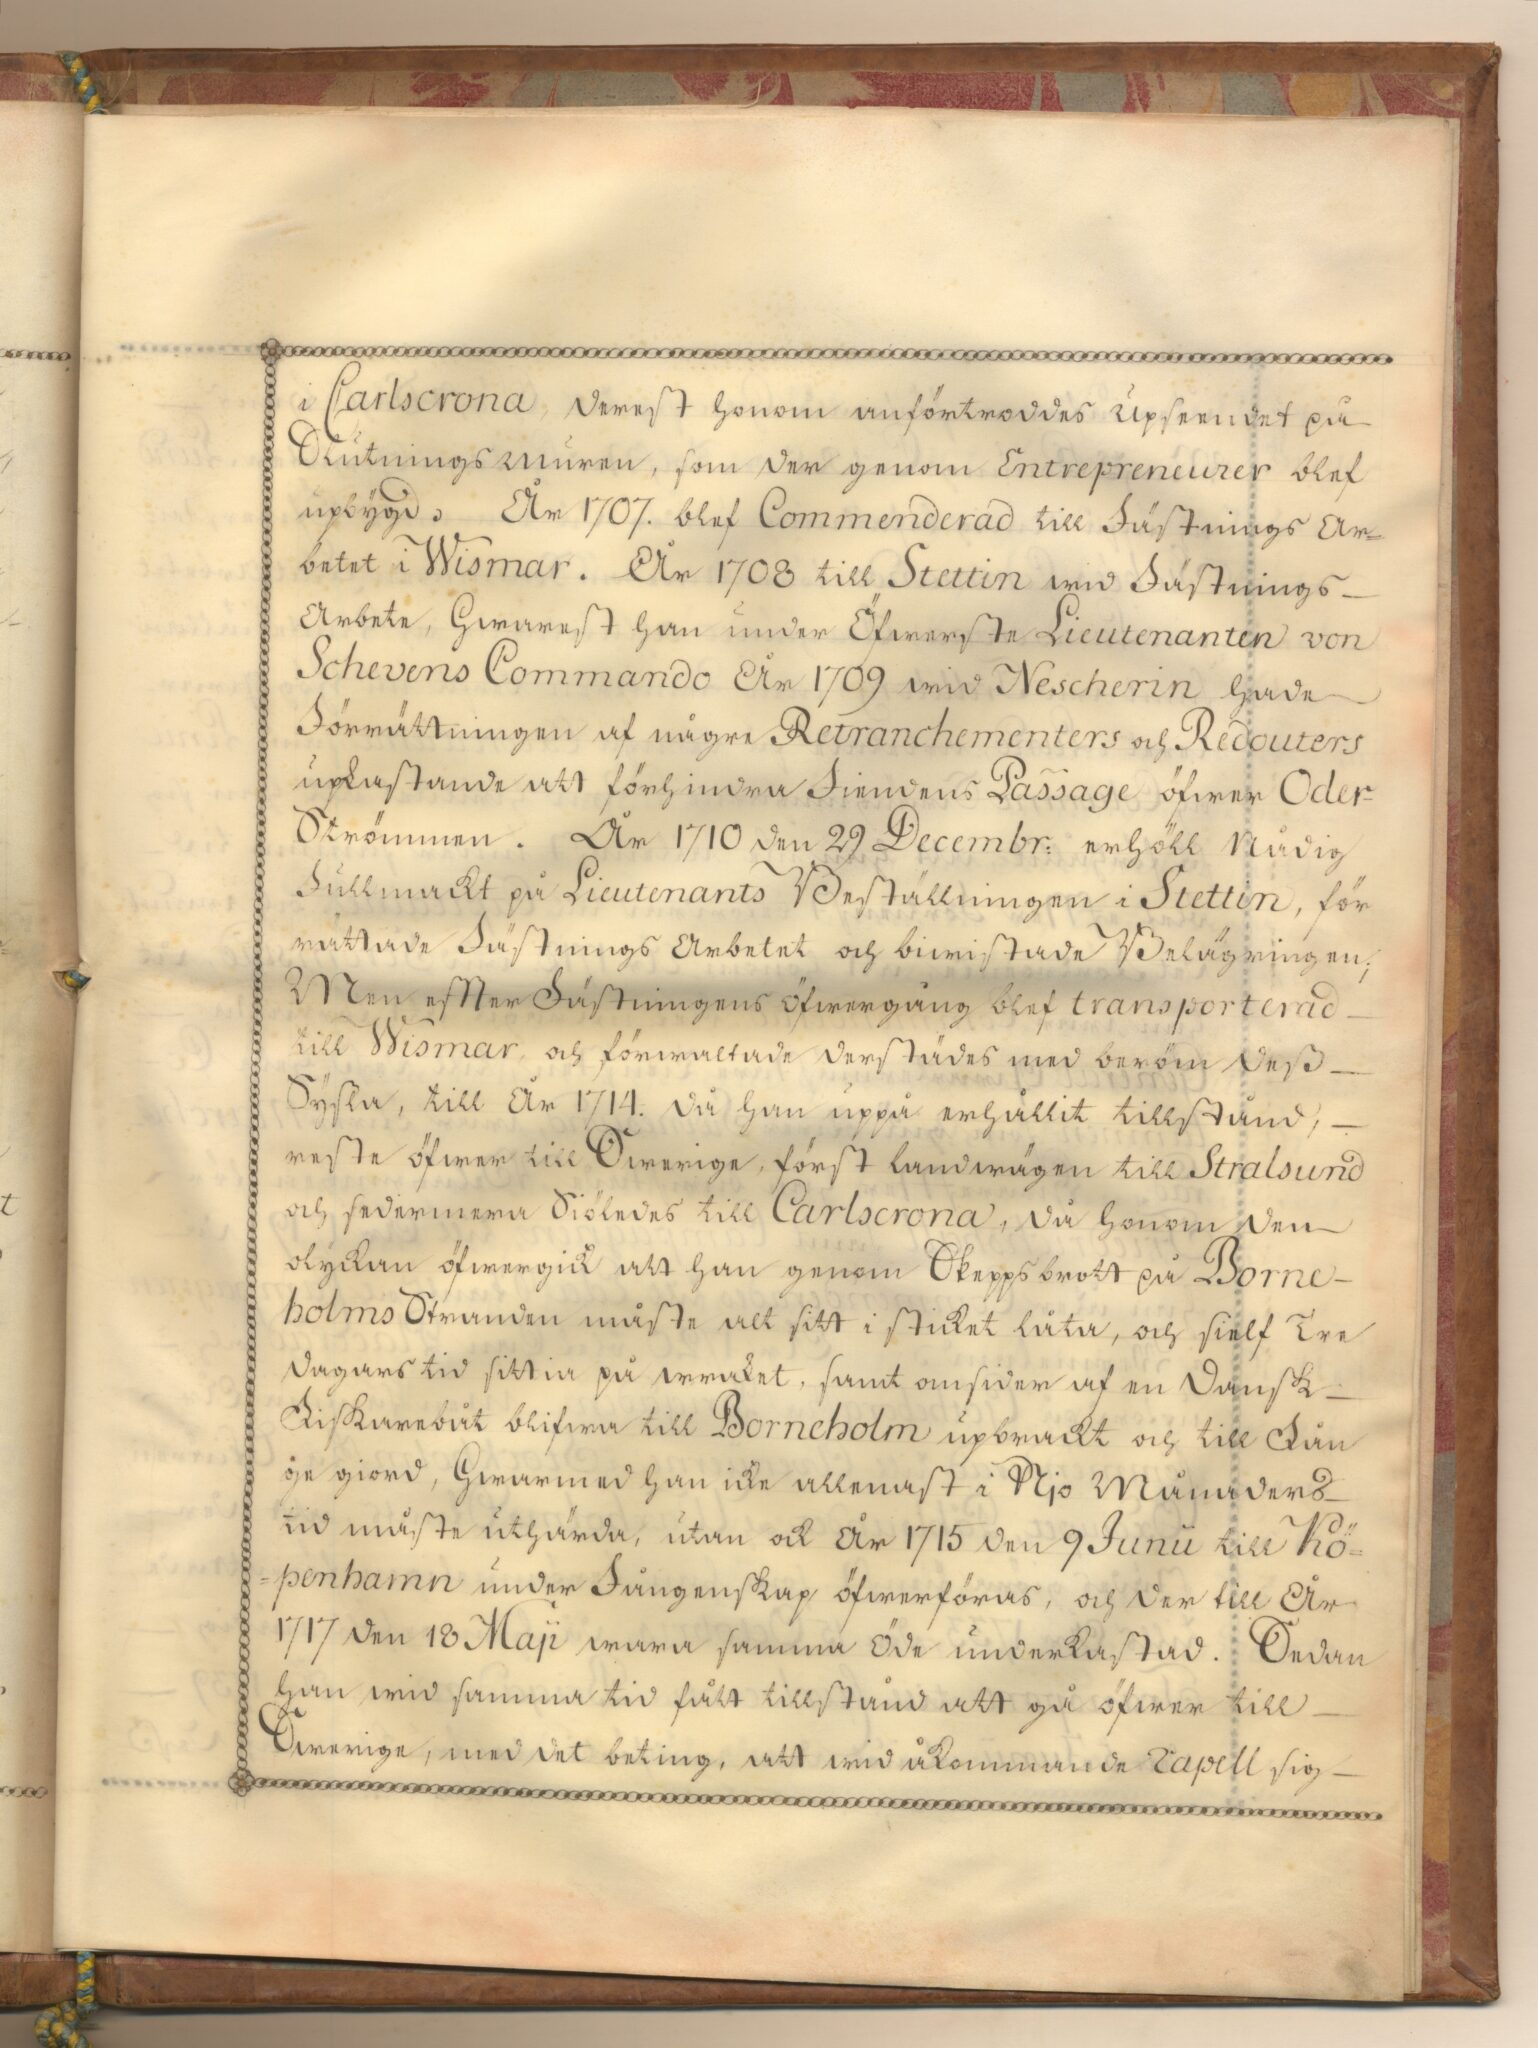 i Carlscrona, derest honom anförtroddes Upseendet på
Slutnings Muren, som der genom Entrepreneurer blef
upbygd. År 1707. blef Commenderad till Fästnings Ar=
betet i Wismar. År 1708 till Stettin wid Fästnings
Arbete, Hwarest han under Öfwerste Lieutenanten von
Schevens Commando År 1709 wid Nescherin hade
Förrättningen af någre Retranchementers och Redouters
upkastande att förhindra Fiendens Passage öfwer Oder=
Strömmen. År 1710 den 29 Decembr: erhöll Nådig
Fullmackt på Lieutenants Beställningen i Stettin, för
rättade Fästnings Arbetet och biwistade Belägringen;
Men effter Fästningens öfwergång blef transporterad
till Wismar, och förwaltade derstädes med beröm dess
Sysla, till År 1714. då han uppå erhållit tillstånd,
reste öfwer till Swerige, först landwägen till Stralsund
och sedermera Siöledes till Carlscrona, då honom den
olyckan öfwergick att han genom Skeppsbrott på Borne-
holms Stranden måste alt sitt i sticket låta, och sielf Tre
dagars tid sittia på wraket, samt omsider af en Dansk
Fiskarebåt blifwa till Borneholm upbrackt och till Fån
ge giord, Hwarmed han icke allenast i Nijo Månaders
tid måste uthärda, utan ock År 1715 den 9 Junii till Kö=
=penhamn under Fångenskap öfwerföras, och der till År
1717 den 18 Maji wara samma Öde underkastad. Sedan
han wid samma tid fått tillstånd att gå öfwer till
Swerige, med det beting, att wid åkommande rapell sig